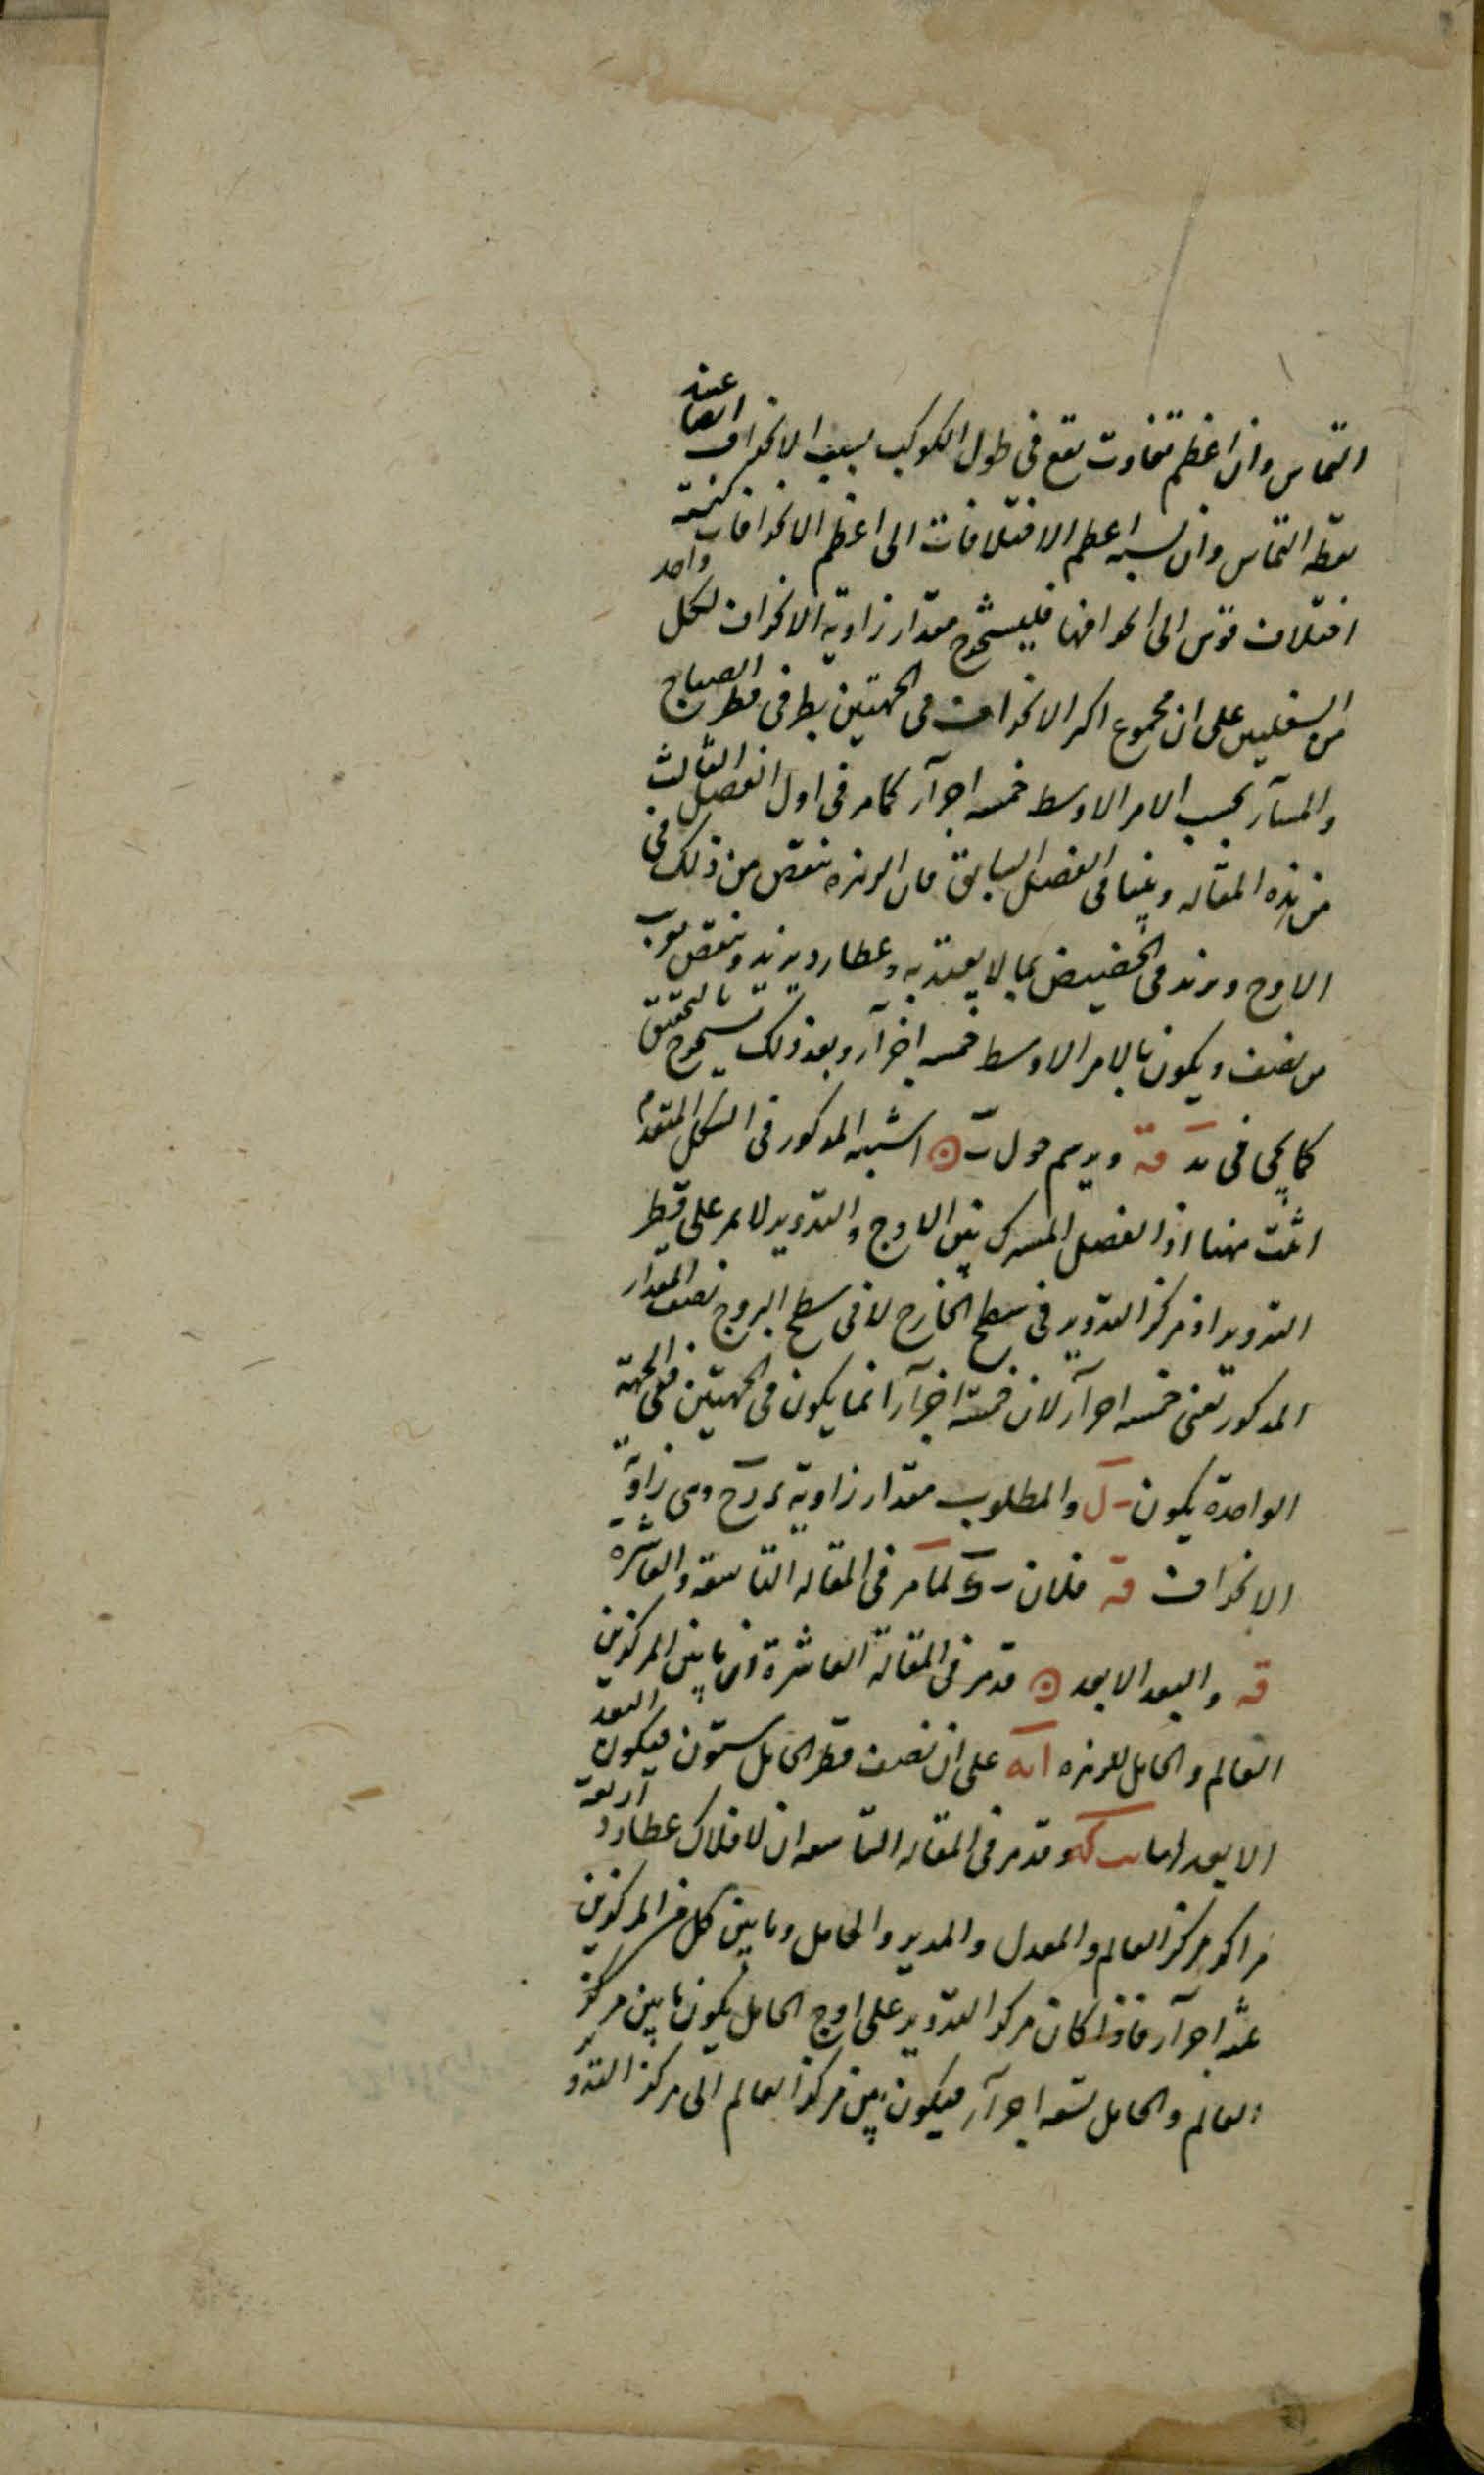 التماس وان اعظم تفاوت يقع فى طول الكوكب بسبب الانحراف ايضا عند
نقطه التماس وان نسبه اعظم الاختلافات الى اعظم الانحرافات كنسبة
اختلاف قوس الى انحرافها فليستخرج مقدار زاوية الانحراف لكل واحد
من السفليين على ان مجموع اكبر الانحراف فى الجهتين بطرفى قطر الصباح
والمسآء بحسب الامر الاوسط خمسه اجزآء كما مر فى اول الفصل الثالث
من هذه المقاله وبينا فى الفصل السابق فان الزهره ينقص من ذلك فى
الاوج ويزيد فى الحضيض بما لا يعتد به وعطارد يزيد وينقص بقريب
من نصف ويكون بالامر الاوسط خمسه اجزآء وبعد ذلك يستخرج بالتحقيق
كما يجى فى يد قه ويرسم حول الشبيه المذكور فى الشكل المتقدم
اثبت ههنا اذ الفصل المشترك بين الاوج والتدوير لا يمر على قطر
التدوير اذ مركز التدوير فى سطح الخارج لا فى سطح البروج نصف المقدار
المذكور نعنى خمسه اجزآء لان خمسة اجزآء انما يكون فى الجهتين ففى الجهة
الواحدة يكون ب ل والمطلوب مقدار زاوية وهى زاوية
الانحراف قه فلان لما مر فى المقاله التاسعة والعاشرة
قه والبعد الابعد قد مر فى المقالة العاشرة ان ما بين المركزين
العالم والحامل للزهره ا يه على ان نصف قطر الحامل ستون فيكون البعد
الابعد لها وقد مر فى المقاله التاسعه ان لافلاك عطارد اربعة
مراكز مركز العالم والمعدل والمدير والحامل وما بين كل من المركزين
ثلثه اجزآء فاذا كان مركز التدوير على اوج الحامل يكون ما بين مركز
العالم والحامل تسعه اجزآء فيكون بين مركز العالم الى مركز التدوير